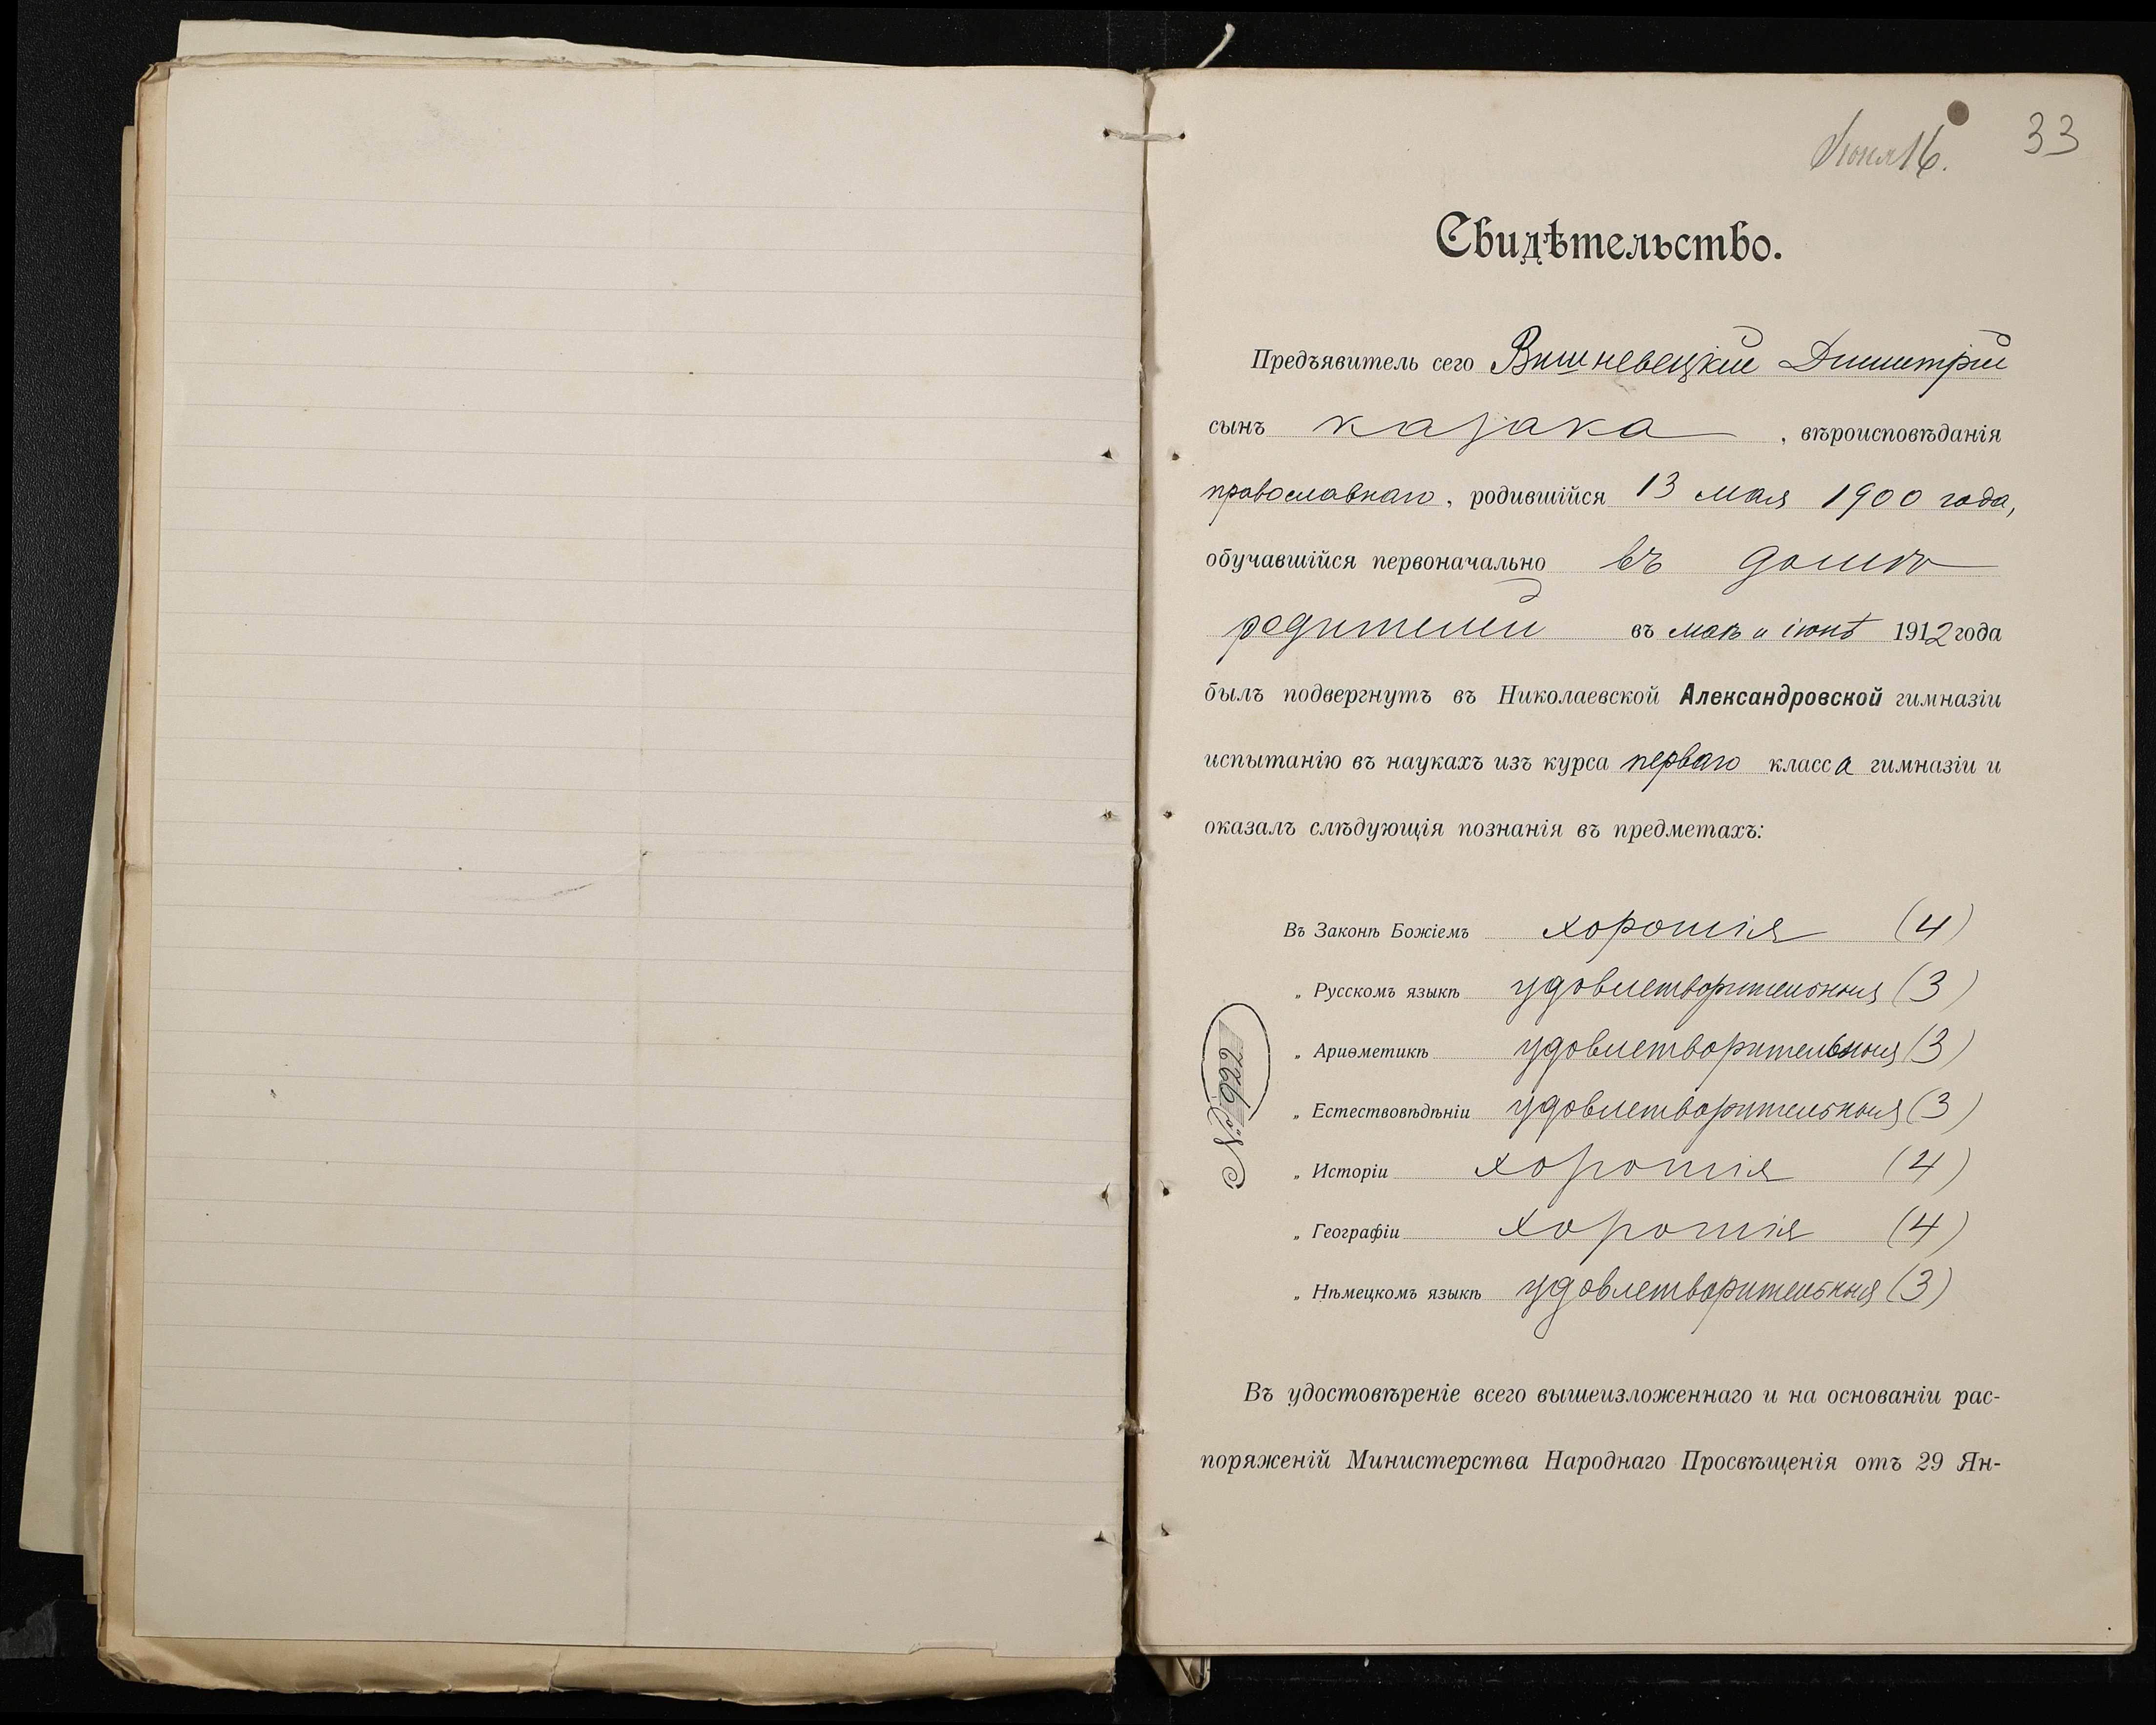 33
Июня 16.
Свидѣтельство.
Предъявитель сего Вишневецкій Димитрій
сынъ казака, вѣроисповѣданія
православнаго, родившійся 13 мая 1900 года,
обучавшійся первоначально въ домѣ
родителей въ маѣ и іюнѣ 1912 года
былъ подвергнутъ въ Николаевской Александровской гимназіи
испытанію въ наукахъ изъ курса перваго класса гимназіи и
оказалъ слѣдующія познанія въ предметахъ:
Въ Законѣ Божіемъ хорошія (4)
„ Русскомъ языкѣ удовлетворительныя (3)
„ Ариѳметикѣ удовлетворительныя (3)
„ Естествовѣдѣніи удовлетворительныя (3)
„ Исторіи хорошія (4)
„ Географіи хорошія (4)
„ Нѣмецкомъ языкѣ удовлетворительныя (3)
№ 922
Въ удостовѣреніе всего вышеизложеннаго и на основаніи рас-
поряженій Министерства Народнаго Просвѣщенія отъ 29 Ян-